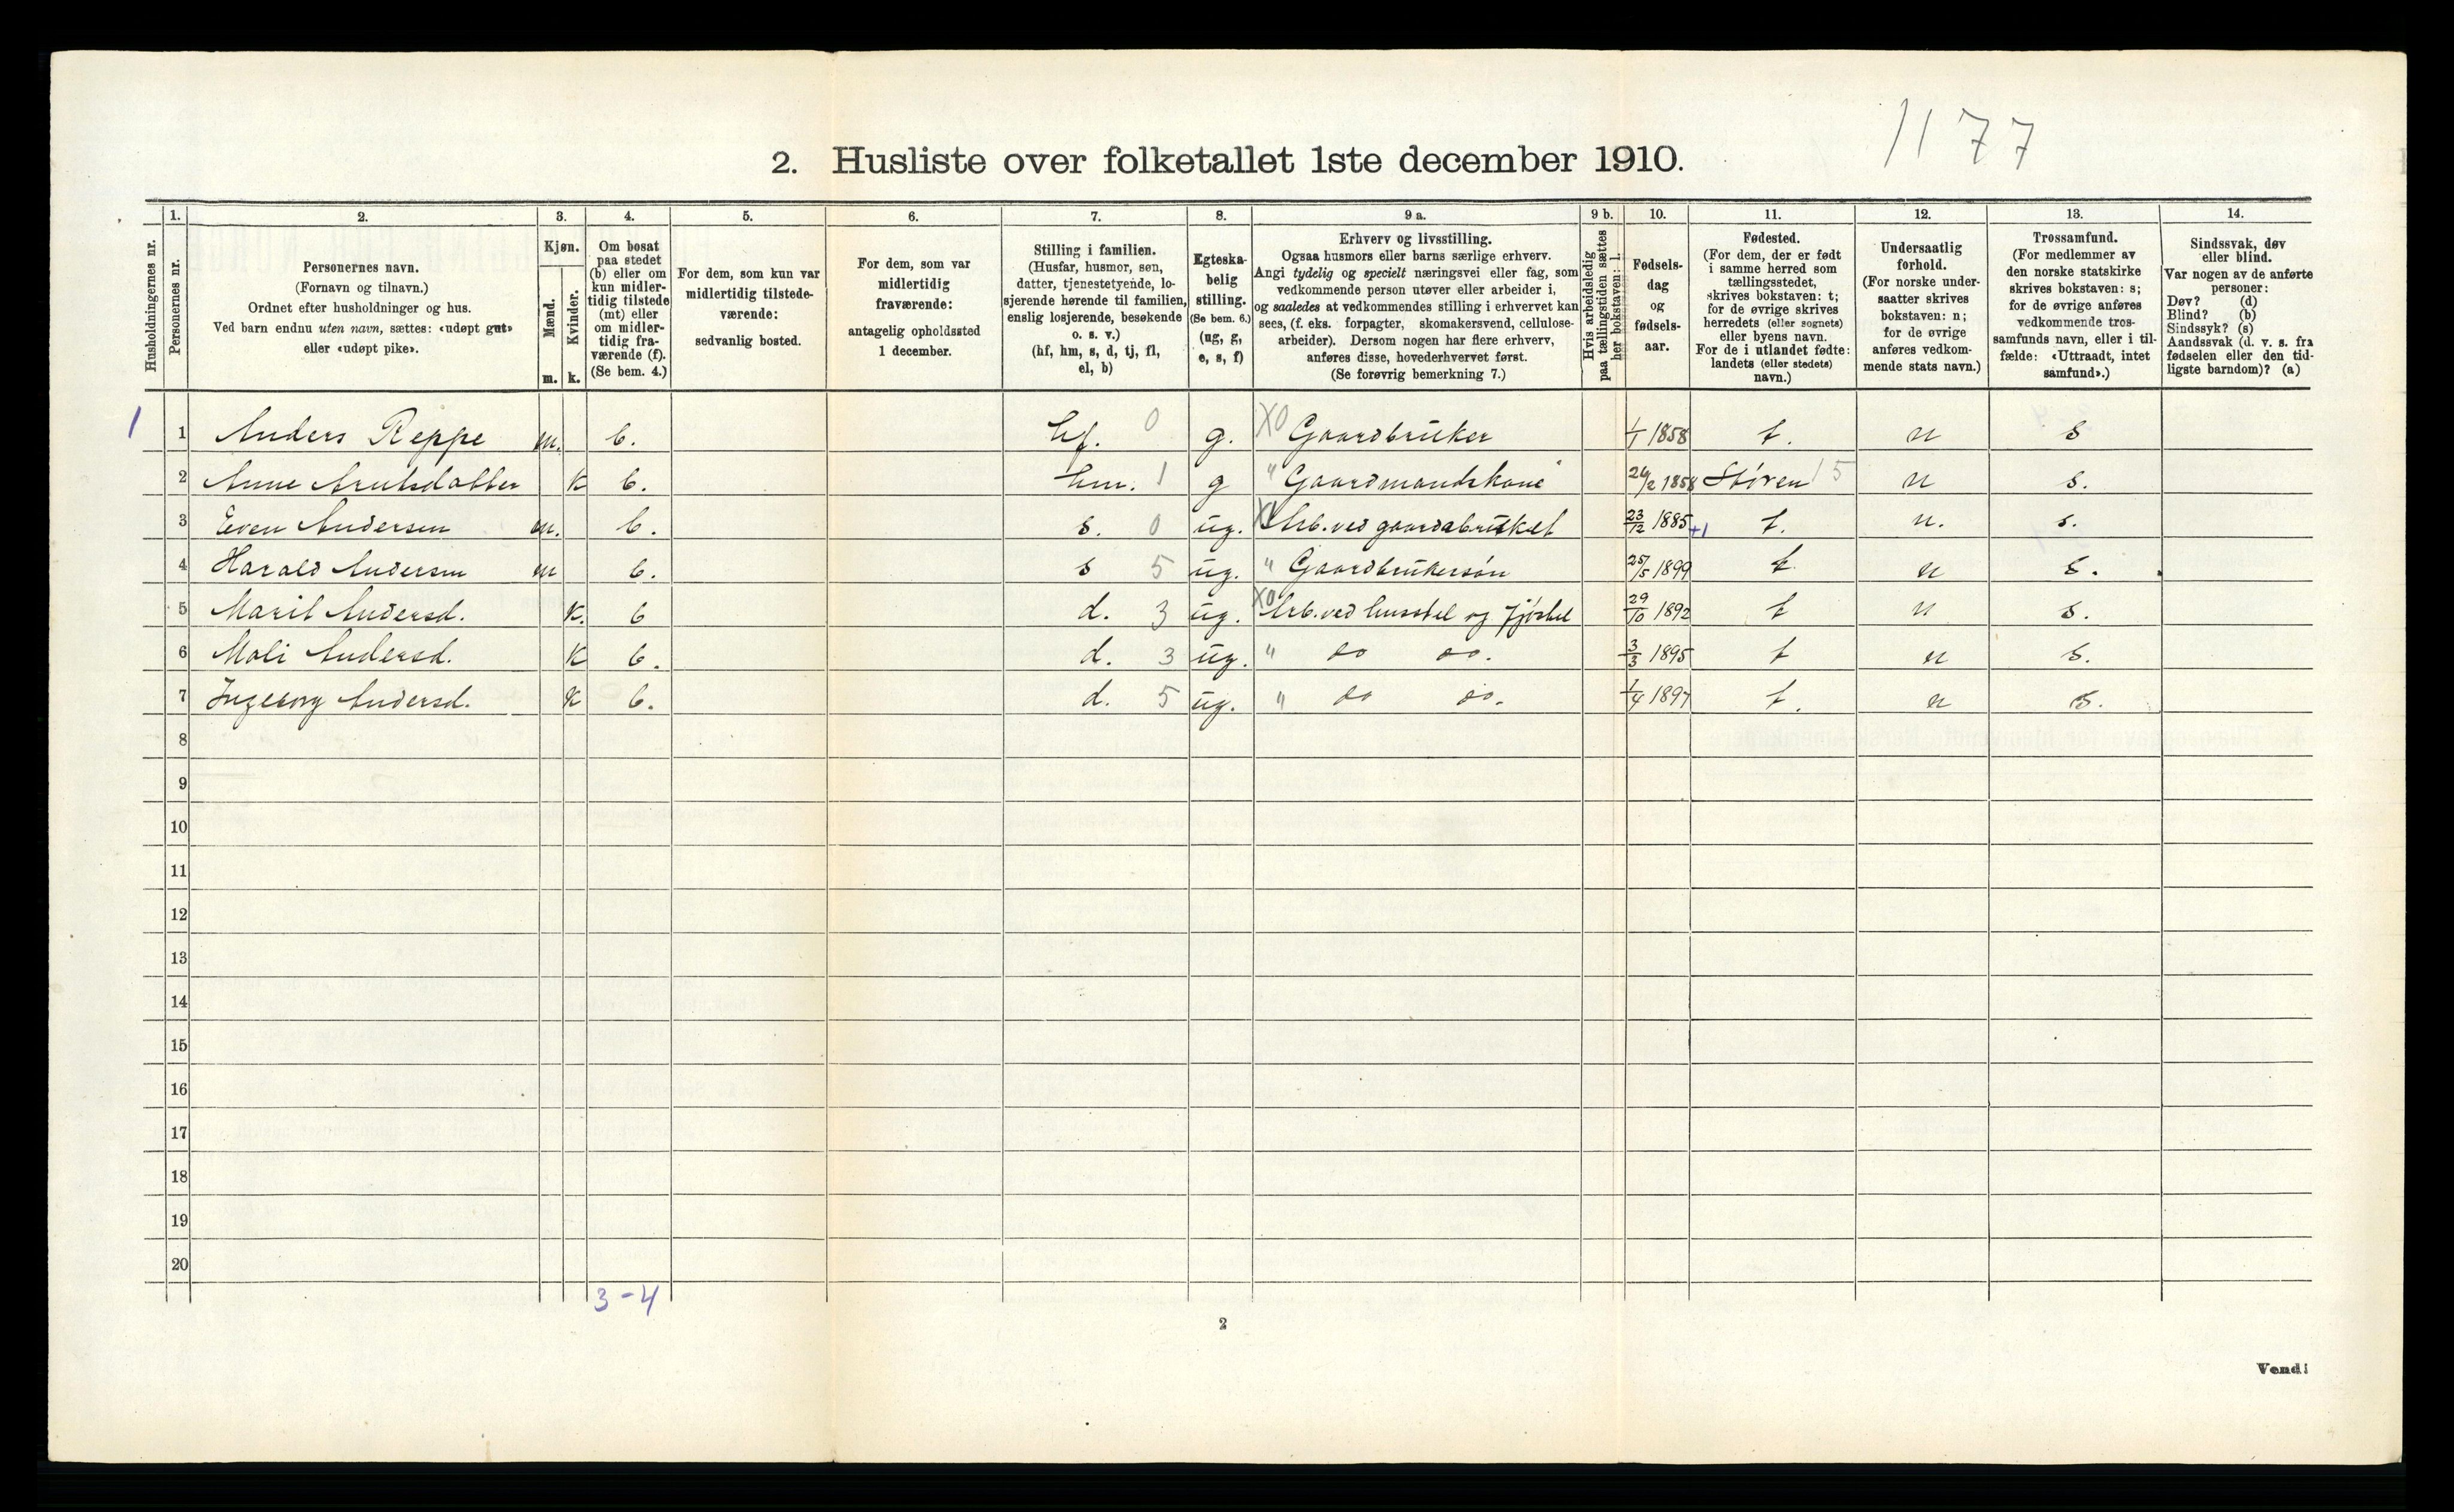 1177
2. Husliste over folketallet 1ste december 1910.
1. 2. 3. 4. 5. 6. 7. 8. 9 a. 9 b. 10. 11. 12. 13. 14.
Husholdningernes nr.
Personernes nr.
Personernes navn.
(Fornavn og tilnavn.)
Ordnet efter husholdninger og hus.
Ved barn endnu uten navn, sættes: «udøpt gut»
eller «udøpt pike».
Kjøn.
Mænd.
Kvinder.
m. k.
Om bosat
paa stedet
(b) eller om
kun midler-
tidig tilstede
(mt) eller
om midler-
tidig fra-
værende (f).
(Se bem. 4.)
For dem, som kun var
midlertidig tilstede-
værende:
sedvanlig bosted.
For dem, som var
midlertidig
fraværende:
antagelig opholdssted
1 december.
Stilling i familien.
(Husfar, husmor, søn,
datter, tjenestetyende, lo-
sjerende hørende til familien,
enslig losjerende, besøkende
o. s. v.)
(hf, hm, s, d, tj, fl,
el, b)
Egteska-
belig
stilling.
(Se bem. 6.)
(ug, g,
e, s, f)
Erhverv og livsstilling.
Ogsaa husmors eller barns særlige erhverv.
Angi tydelig og specielt næringsvei eller fag, som
vedkommende person utøver eller arbeider i,
og saaledes at vedkommendes stilling i erhvervet kan
sees, (f. eks. forpagter, skomakersvend, cellulose-
arbeider). Dersom nogen har flere erhverv,
anføres disse, hovederhvervet først.
(Se forøvrig bemerkning 7.)
Hvis arbeidsledig
paa tællingstiden sættes
her bokstaven: l.
Fødsels-
dag
og
fødsels-
aar.
Fødested.
(For dem, der er født
i samme herred som
tællingsstedet,
skrives bokstaven: t;
for de øvrige skrives
herredets (eller sognets)
eller byens navn.
For de i utlandet fødte:
landets (eller stedets)
navn.)
Undersaatlig
forhold.
(For norske under-
saatter skrives
bokstaven: n;
for de øvrige
anføres vedkom-
mende stats navn.)
Trossamfund.
(For medlemmer av
den norske statskirke
skrives bokstaven: s;
for de øvrige anføres
vedkommende tros-
samfunds navn, eller i til-
fælde: «Uttraadt, intet
samfund».)
Sindssvak, døv
eller blind.
Var nogen av de anførte
personer:
Døv? (d)
Blind? (b)
Sindssyk? (s)
Aandssvak (d. v. s. fra
fødselen eller den tid-
ligste barndom)? (a)
1 1 Anders Reppe m. b. hf. 0 g. X0 Gaardbruker 1/1 1858 t. n s
2 Anne Arntsdatter k b. hm. 1 g " Gaardmandskone 24/2 1858 Støren 15 n s.
3 Even Andersen m. b. s. 0 ug. Arb. ved gaardsbruket 23/12 1885 +1 t. n. s.
4 Harald Andersen m b. s 5 ug. " Gaardbrukersøn 25/5 1899 t n s.
5 Marit Andersd. k. b d. 3 ug. X0 Arb. ved husstel og fjøsstel 29/10 1892 t n s.
6 Mali Andersd. k b. d. 3 ug. " do do. 3/3 1895 t n s.
7 Ingeborg Andersd. k b. d. 5 ug. " do do. 1/4 1897 t. n s.
8
9
10
11
12
13
14
15
16
17
18
19
20
3-4
2
Vend!